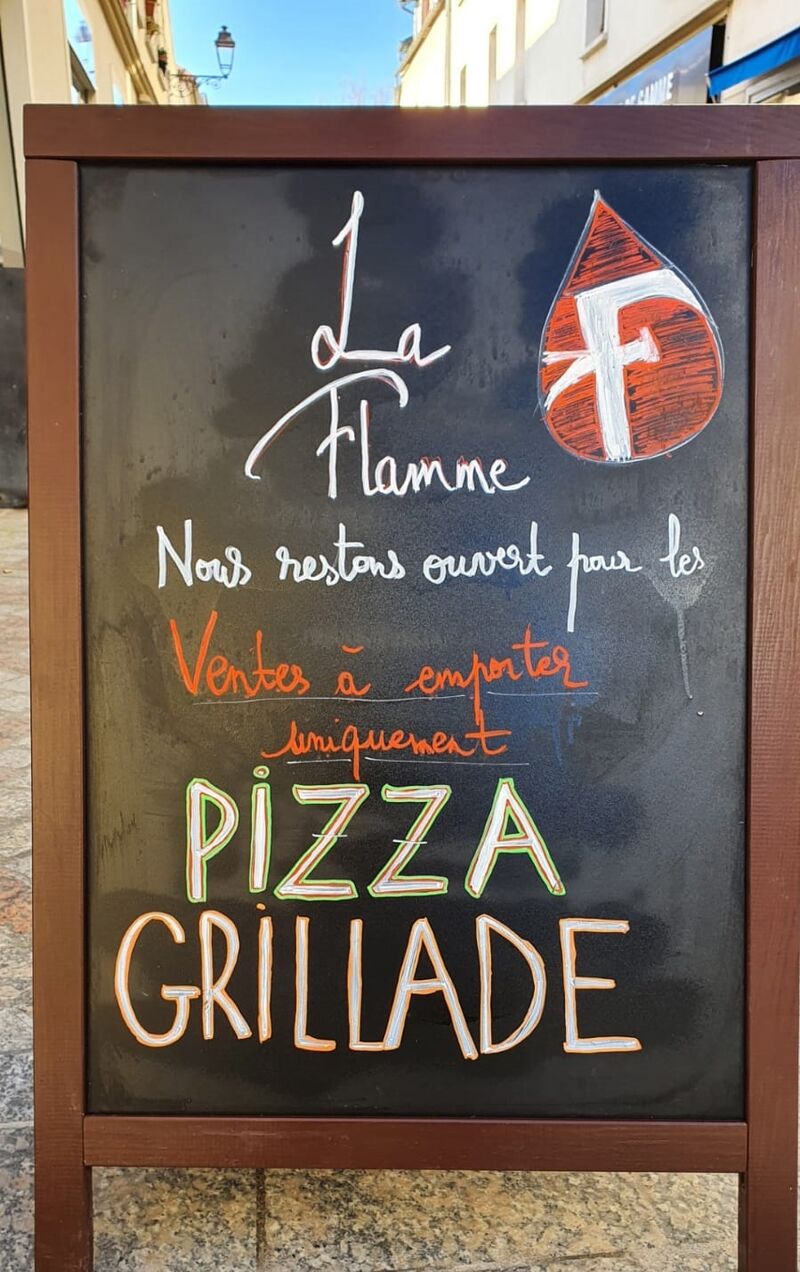 La
F
Flamme
Nous restons ouvert pour les
Ventes à emporter
uniquement
PiZZA
GRiLLADE